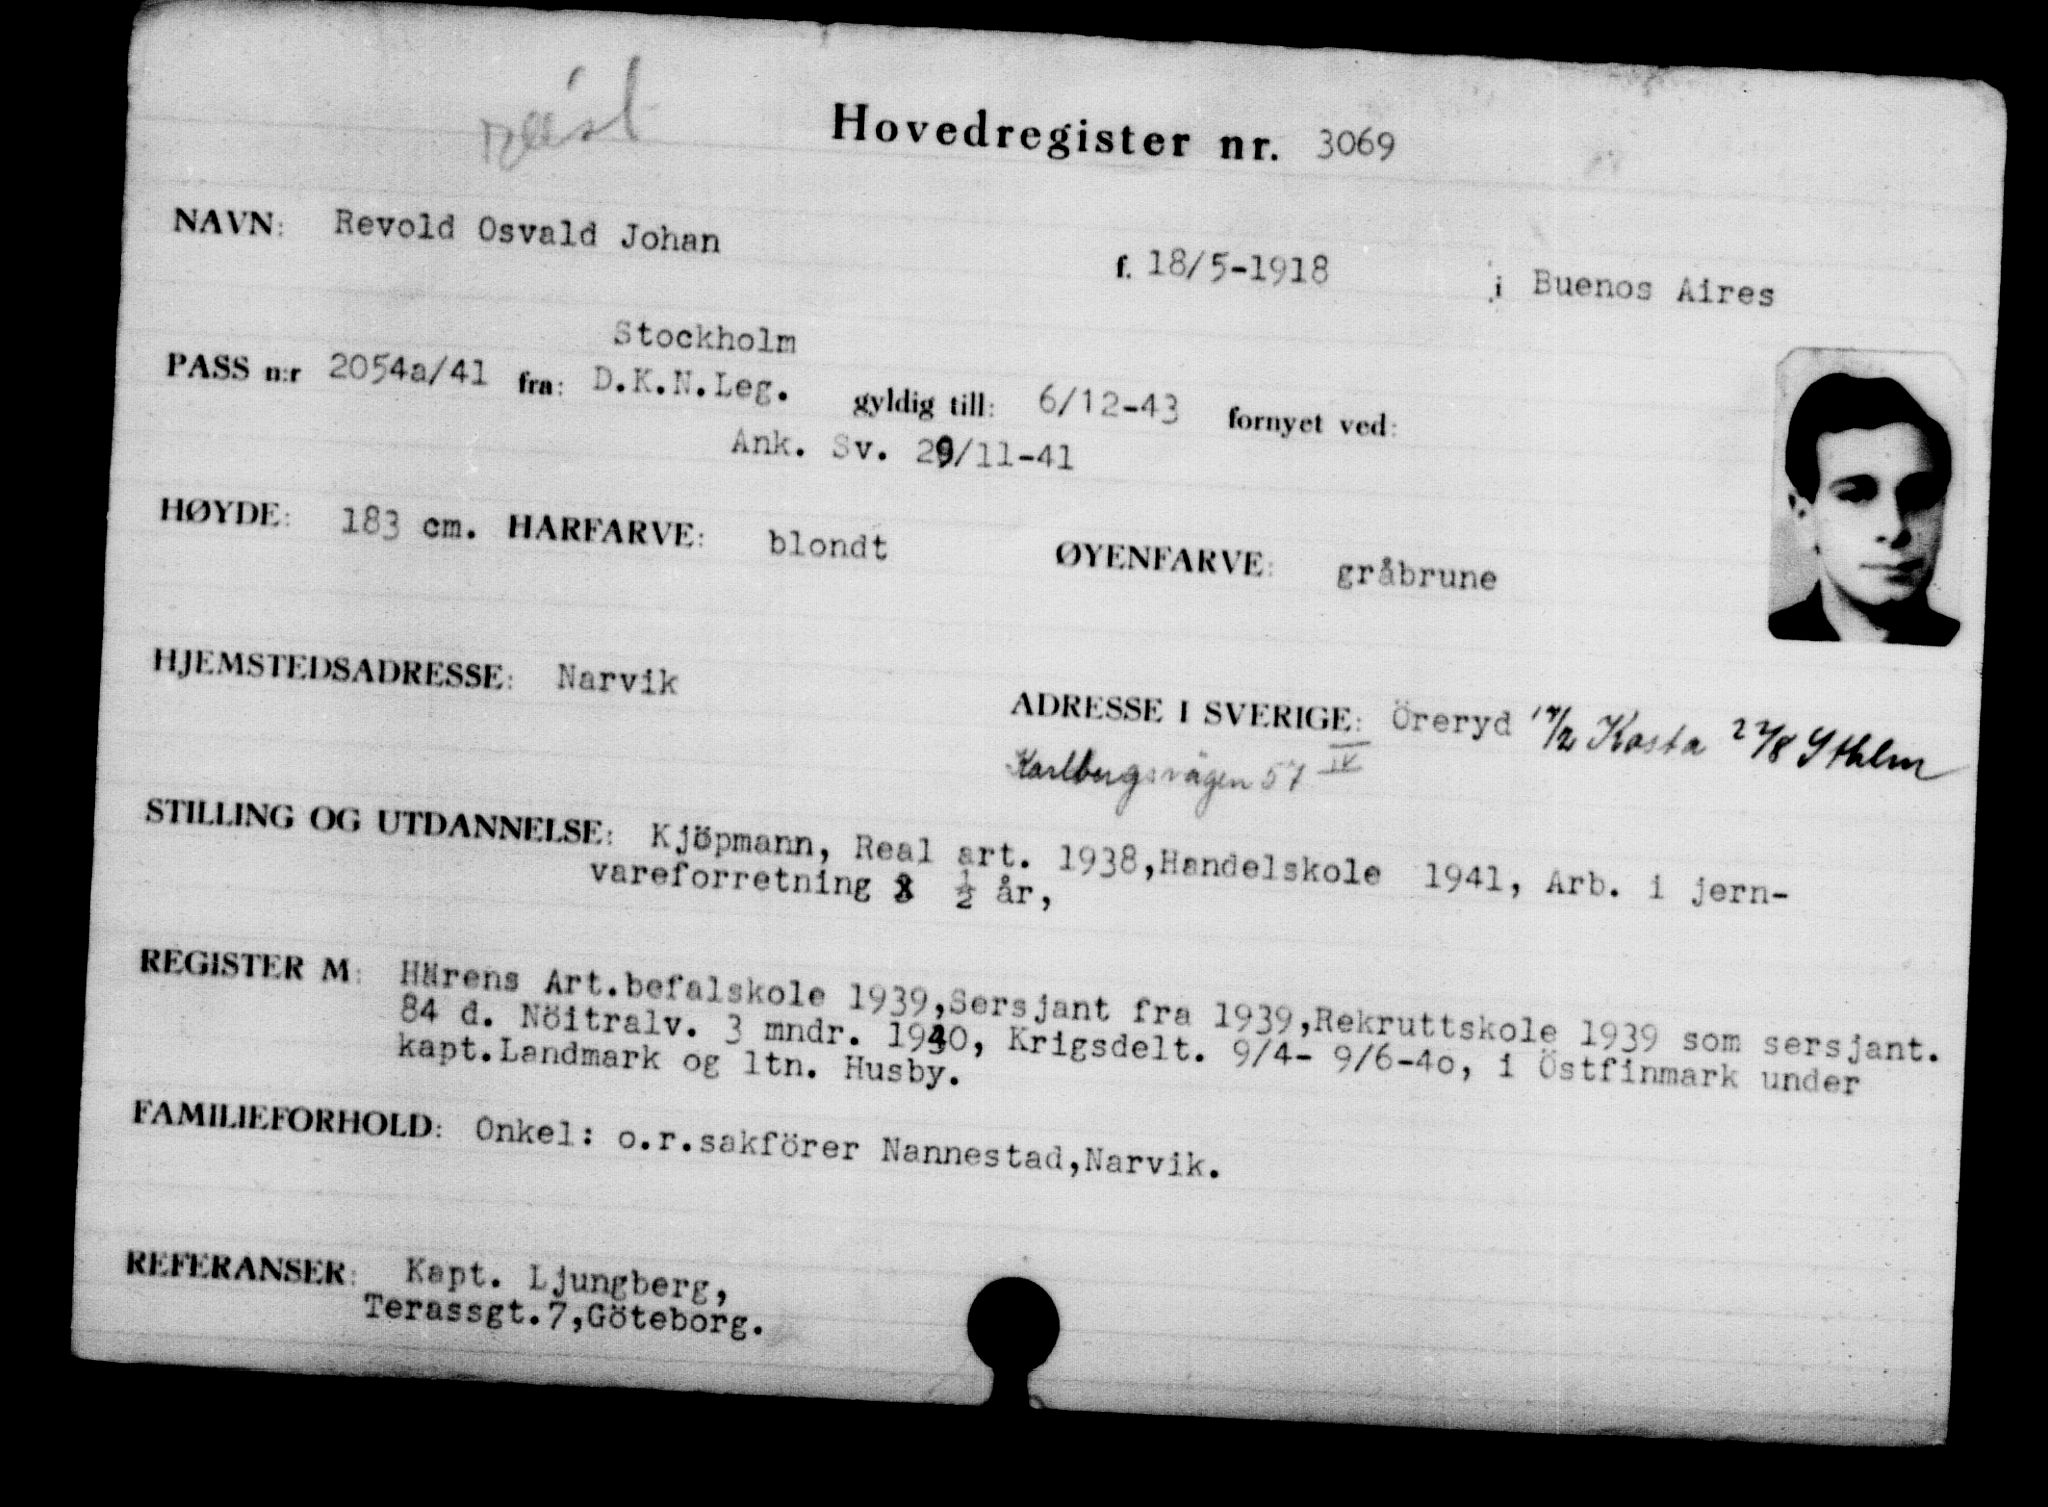 Hovedregister nr. 3069
NAVN: Revold Osvald Johan f. 18/5-1918 i Buenos Aires
Stockholm
PASS n:r 2054a/41 fra: D.K.N.Leg. gyldig till: 6/12-43 fornyet ved:
Ank. Sv. 29/11-41
HØYDE: 183 cm. HARFARVE: blondt ØYENFARVE: gråbrune
HJEMSTEDSADRESSE: Narvik
ADRESSE I SVERIGE: Öreryd Kosta Sthlm
Karlbergsvägen 57 IV
STILLING OG UTDANNELSE: Kjöpmann, Real art. 1938,Handelskole 1941, Arb. i jern-
vareforretning ½ år,
REGISTER M: Härens Art.befalskole 1939,Sersjant fra 1939,Rekruttskole 1939 som sersjant.
84 d. Nöitralv. 3 mndr. 1940, Krigsdelt. 9/4- 9/6-4o, i Östfinmark under
kapt.Landmark og ltn. Husby.
FAMILIEFORHOLD: Onkel: o.r.sakförer Nannestad,Narvik.
REFERANSER: Kapt. Ljungberg,
Terassgt.7,Göteborg.